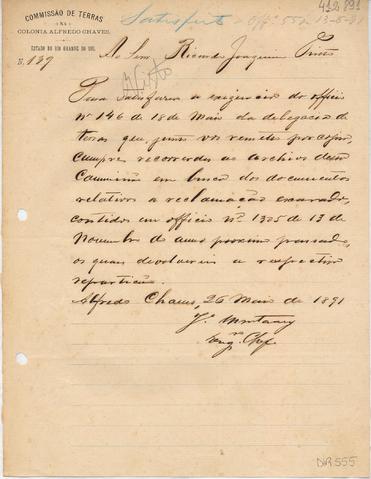 COMMISSÃO DE TERRAS
NA
COLONIA ALFREDO CHAVES.
ESTADO DO RIO GRANDE DO SUL
N. 139
Satisfeito Off. 552 13-6-91
Ao Snr. Ricardo Joaquim Pinto
Para satisfazer a exigencia do officio
Nº 146 de 18 de Maio da delegacia de
terras que junto vos remetto por copia,
cumpre recorrerdes ao archivo desta
Commissão em busca dos documentos
relativos a reclamação
contidos em officio nº 1305 de 13 de
Novembro do anno proximo passado,
os quaes devolvereis a respectiva
repartição.
Alfredo Chaves, 26 Maio de 1891
J. Montaury
Engº Chefe
DIR 555